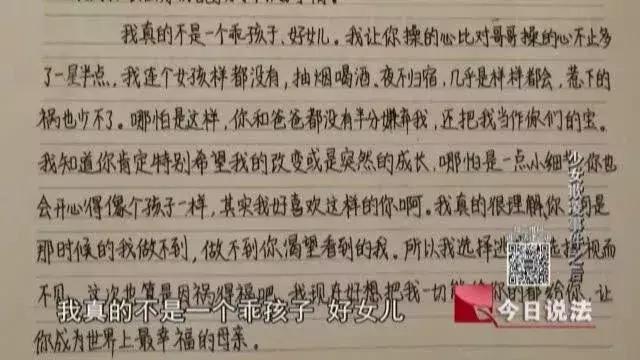 我真的不是一个乖孩子、好女儿。我让你操的心比对哥哥操的心不止多
了一星半点，我连个女孩样都没有，抽烟喝酒、夜不归宿，几乎是样样都会，惹下的
祸也少不了。哪怕是这样，你和爸爸都没有半分嫌弃我，还把我当作你们的宝。
我知道你肯定特别希望我的改变或是突然的成长，哪怕是一点小细节你也
会开心得像个孩子一样，其实我好喜欢这样的你啊。我真的很理解你 是
那时候的我做不到，做不到你渴望看到的我。所以我选择逃 选择视而
不见 这次也算是因祸得福吧 我现在好想把我一切能给你的都给你 让
你成为世界上最幸福的母亲。
我真的不是一个乖孩子 好女儿
少女 之后
今日说法